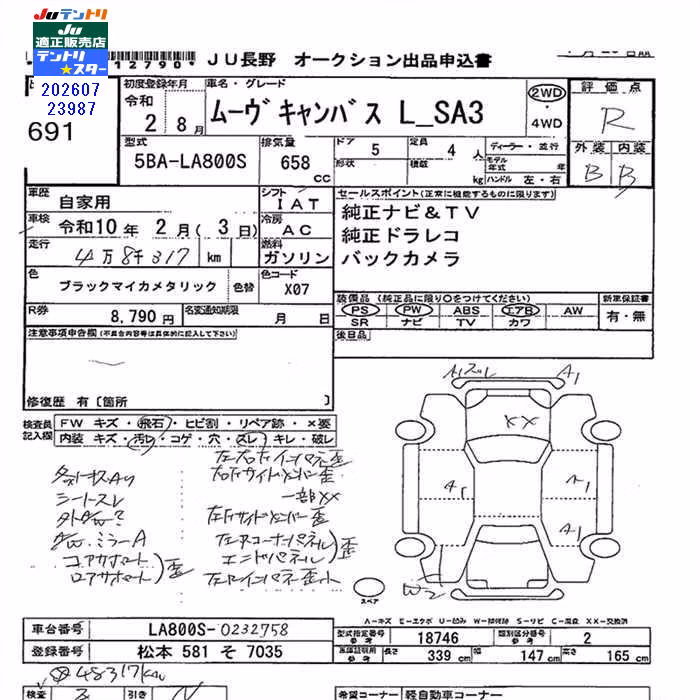 Juテントリ
Ju
適正販売店
テントリ
★スター
202607
23987
12790
JU長野 オークション出品申込書
691
初度登録年月
令和
2 8月
車名・グレード
ムーヴキャンバス L_SA3
2WD
・4WD
評価点
R
外装 内装
B B
型式
5BA-LA800S
排気量
658 cc
ドア 5
形状
定員 4 人
積数 kg
ディーラー・並行
モデル年式 年
ハンドル 左・右
車歴 自家用
シフト IAT
車検 令和10年 2月( 3日)
冷房 AC
走行 4万8千317 km
燃料 ガソリン
色 ブラックマイカメタリック 色替
色コード X07
R券 8,790円
名変通知期限 月 日
セールスポイント(正常に機能するものに限ります)
純正ナビ&TV
純正ドラレコ
バックカメラ
装備品 (純正品に限り○をつけてください)
PS ・ PW ・ ABS エアB ・ AW
SR ナビ TV カワ
新車保証書
有・無
後日品
注意事項申告欄(不具合内容等は具体的に記入して下さい)
修復歴 有〔箇所 〕
検査員記入欄
FW キズ・飛石・ヒビ割・リペア跡・×要
内装 キズ・汚レ・コゲ・穴・ズレ・キレ・破レ
シートスレ
ミラーA
コアサポート
ロアサポート 歪
左右フインパネ歪
右Fサイドメンバー歪
一部XX
左Fサイドメンバー歪
左Rコーナーパネル
エンドパネル 歪
左Rインパネ歪
A1
XX
A1
A1
A1
W2
スペア
A-キズ E-エクボ U-凹み W-補修跡 S-サビ C-腐食 XX-交換済
車台番号 LA800S-0232758
登録番号 松本 581 そ 7035
型式指定番号 参考 18746
類別区分番号 参考 2
車庫証明用 参考 長さ 339 cm 幅 147 cm 高さ 165 cm
48317km
検査
引き
希望コーナー 軽自動車コーナー